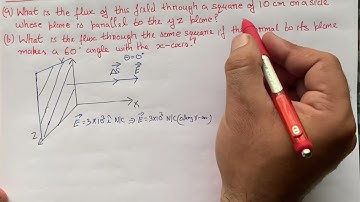 (a) What is the flux of this field through a square of 10 cm on a side
whose plane is parallel to the yz plane?
(b) What is the flux through the same square if the normal to its plane
makes a 60° angle with the x-axis?
θ=0°
Y
ΔS
E
X
Z
E = 3×10³ î N/C ⇒ E = 3×10³ N/C (along x-axis)